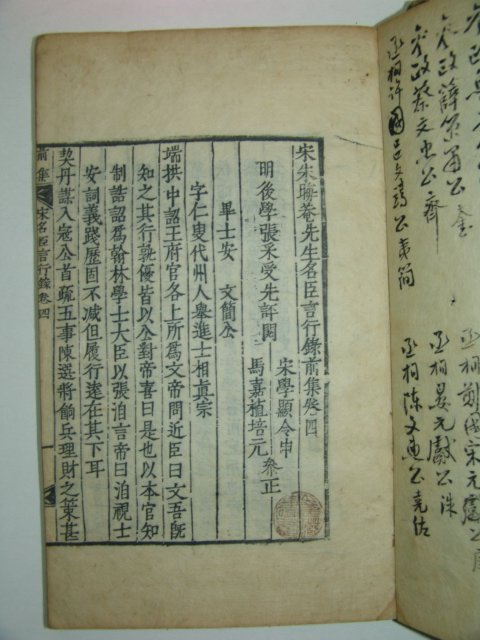 參政薛簡肅公 奎
參政蔡文忠公 齊
丞相許國呂文靖公夷簡
宋元憲公
丞相晏元獻公洙
丞相陳文惠公堯佐
宋朱晦菴先生名臣言行錄前集卷四
宋學顯令申
明後學張采受先評閱
馬嘉植培元 叅正
畢士安 文簡公
字仁叟代州人舉進士相真宗
端拱中詔王府官各上所爲文帝問近臣曰文吾旣
知之其行孰優皆以公對帝喜曰是也以本官知
制誥詔爲翰林學士大臣以張洎言帝曰洎視士
安詞義踐歷固不減但履行遠在其下耳
契丹謀入寇公首疏五事陳選將餉兵理財之策甚
前集 宋名臣言行錄卷四